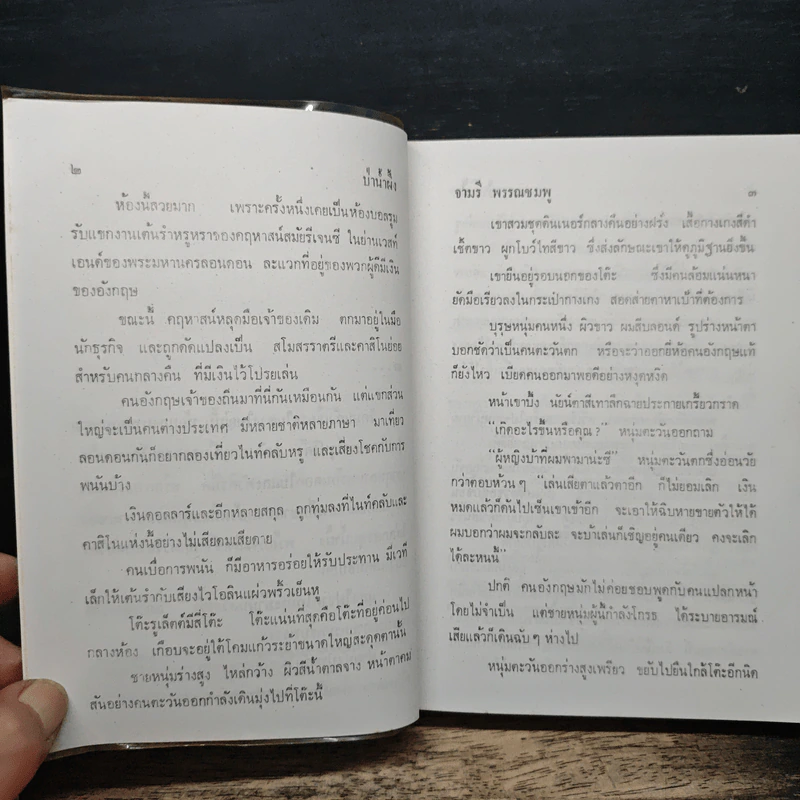 ๒
บ่าน้ำผึ้ง
ห้องนี้สวยมาก เพราะครั้งหนึ่งเคยเป็นห้องบอลรูม
รับแขกงานเต้นรำหรูหราของคฤหาสน์สมัยรีเจนซี ในย่านเวสท์
เอนด์ของพระมหานครลอนดอน ละแวกที่อยู่ของพวกผู้ดีมีเงิน
ของอังกฤษ
ขณะนี้ คฤหาสน์หลุดมือเจ้าของเดิม ตกมาอยู่ในมือ
นักธุรกิจ และถูกดัดแปลงเป็น สโมสรราตรีและคาสิโนย่อย
สำหรับคนกลางคืน ที่มีเงินไว้โปรยเล่น
คนอังกฤษเจ้าของถิ่นมาที่นี่กันเหมือนกัน แต่แขกส่วน
ใหญ่จะเป็นคนต่างประเทศ มีหลายชาติหลายภาษา มาเที่ยว
ลอนดอนกันก็อยากลองเที่ยวไนท์คลับหรู และเสี่ยงโชคกับการ
พนันบ้าง
เงินดอลลาร์และอีกหลายสกุล ถูกทุ่มลงที่ไนท์คลับและ
คาสิโนแห่งนี้อย่างไม่เสียดมเสียดาย
คนเบื่อการพนัน ก็มีอาหารอร่อยให้รับประทาน มีเวที
เล็กให้เต้นรำกับเสียงไวโอลินแผ่วพริ้วเย็นหู
โต๊ะรูเล็ตต์มีสี่โต๊ะ โต๊ะแน่นที่สุดคือโต๊ะที่อยู่ค่อนไป
กลางห้อง เกือบจะอยู่ใต้โคมแก้วระย้าขนาดใหญ่สะดุดตานั้น
ชายหนุ่มร่างสูง ไหล่กว้าง ผิวสีน้ำตาลจาง หน้าตาคม
สันอย่างคนตะวันออกกำลังเดินมุ่งไปที่โต๊ะนี้
จามรี พรรณชมพู
๓
เขาสวมชุดดินเนอร์กลางคืนอย่างฝรั่ง เสื้อกางเกงสีดำ
เชิ้ตขาว ผูกโบว์ไทสีขาว ซึ่งส่งลักษณะเขาให้ดูภูมิฐานยิ่งขึ้น
เขายืนอยู่รอบนอกของโต๊ะ ซึ่งมีคนล้อมแน่นหนา
ยัดมือเรียวลงในกระเป๋ากางเกง สอดส่ายตาหาเป้าที่ต้องการ
บุรุษหนุ่มคนหนึ่ง ผิวขาว ผมสีบลอนด์ รูปร่างหน้าตา
บอกชัดว่าเป็นคนตะวันตก หรือจะว่าออกยี่ห้อคนอังกฤษแท้
ก็ยังไหว เบียดคนออกมาพอดีอย่างหงุดหงิด
หน้าเขาบึ้ง นัยน์ตาสีเทาลึกฉายประกายเกรี้ยวกราด
“เกิดอะไรขึ้นหรือคุณ?” หนุ่มตะวันออกถาม
“ผู้หญิงบ้าที่ผมพามาน่ะซี” หนุ่มตะวันตกซึ่งอ่อนวัย
กว่าตอบห้วน ๆ “เล่นเสียตาแล้วตาอีก ก็ไม่ยอมเลิก เงิน
หมดแล้วก็ดันไปเซ็นเขาเข้าอีก จะเอาให้ฉิบหายขายตัวให้ได้
ผมบอกว่าผมจะกลับละ จะบ้าเล่นก็เชิญอยู่คนเดียว คงจะเลิก
ได้ละหนนี้”
ปกติ คนอังกฤษมักไม่ค่อยชอบพูดกับคนแปลกหน้า
โดยไม่จำเป็น แต่ชายหนุ่มผู้นี้กำลังโกรธ ได้ระบายอารมณ์
เสียแล้วก็เดินฉับ ๆ ห่างไป
หนุ่มตะวันออกร่างสูงเพรียว ขยับไปยืนใกล้โต๊ะอีกนิด